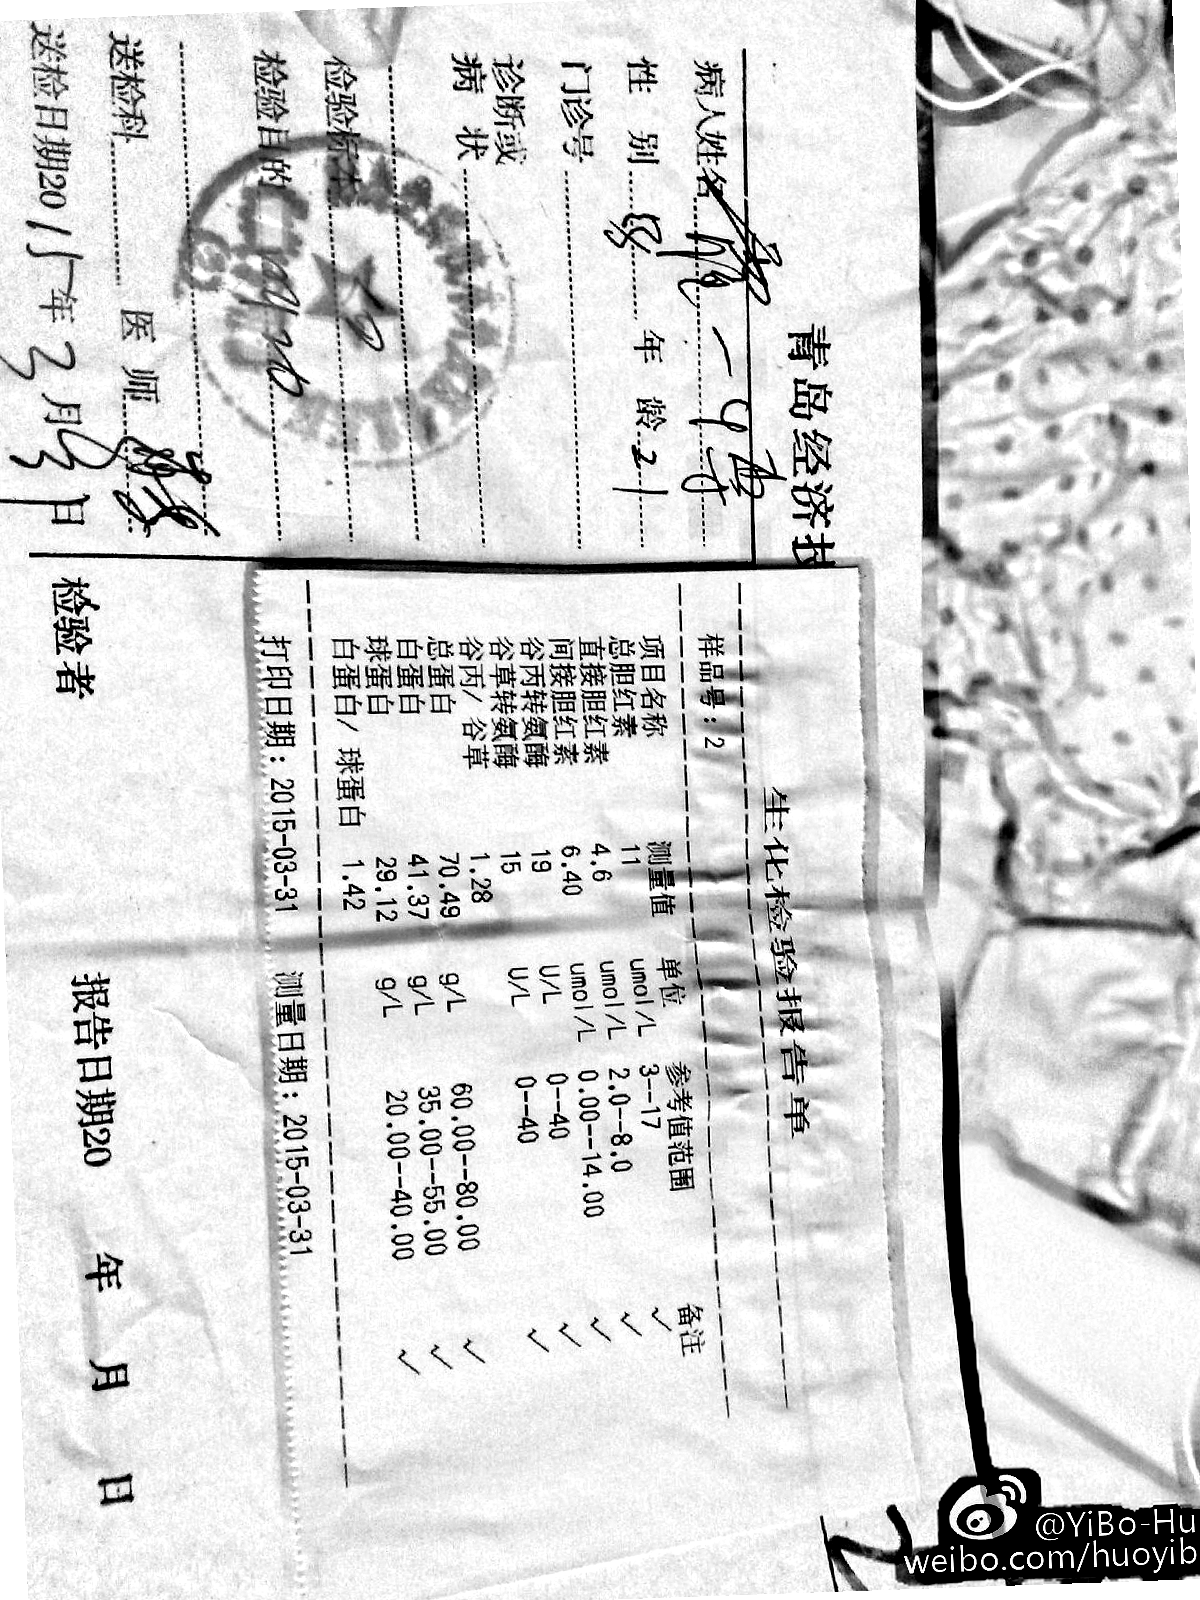 青岛经济技
病人姓名
性 别 年 龄 21
门诊号
诊断或
病 状
检验标本
检验目的
送检科 医 师
送检日期2015年3月31日
生化检验报告单
样品号:2
项目名称 测量值 单位 参考值范围 备注
总胆红素 11 umol/L 3--17 ✓
直接胆红素 4.6 umol/L 2.0--8.0 ✓
间接胆红素 6.40 umol/L 0.00--14.00 ✓
谷丙转氨酶 19 U/L 0--40 ✓
谷草转氨酶 15 U/L 0--40 ✓
谷丙/谷草 1.28
总蛋白 70.49 g/L 60.00--80.00 ✓
白蛋白 41.37 g/L 35.00--55.00 ✓
球蛋白 29.12 g/L 20.00--40.00 ✓
白蛋白/球蛋白 1.42
打印日期:2015-03-31 测量日期:2015-03-31
检验者 报告日期20 年 月 日
@YiBo-Hu
weibo.com/huoyib